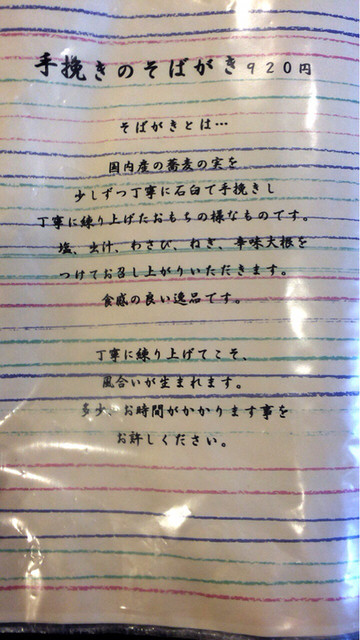 手挽きのそばがき920円
そばがきとは…
国内産の蕎麦の実を
少しずつ丁寧に石臼で手挽きし
丁寧に練り上げたおもちの様なものです。
塩、出汁、わさび、ねぎ、辛味大根を
つけてお召し上がりいただきます。
食感の良い逸品です。
丁寧に練り上げてこそ、
風合いが生まれます。
多少、お時間がかかります事を
お許しください。